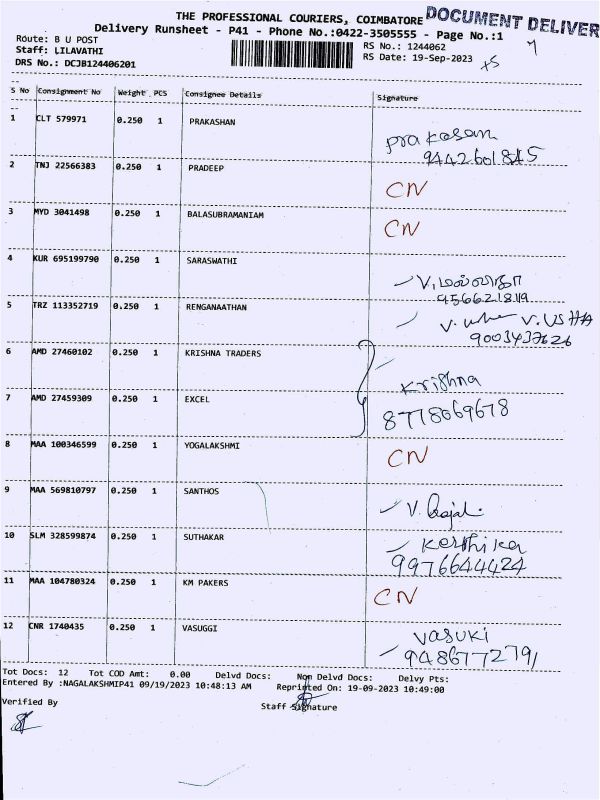 THE PROFESSIONAL COURIERS, COIMBATORE
DOCUMENT DELIVER
Delivery Runsheet - P41 - Phone No.:0422-3505555 - Page No.:1
Route: B U POST
Staff: LILAVATHI
DRS No.: DCJB124406201
RS No.: 1244062
RS Date: 19-Sep-2023
S No Consignment No Weight PCS Consignee Details Signature
1 CLT 579971 0.250 1 PRAKASHAN
prakasam
9442601845
2 TNJ 22566383 0.250 1 PRADEEP
CN
3 MYD 3041498 0.250 1 BALASUBRAMANIAM
CN
4 KUR 695199790 0.250 1 SARASWATHI
9566621819
5 TRZ 113352719 0.250 1 RENGANAATHAN
V. USHA
9003437626
6 AMD 27460102 0.250 1 KRISHNA TRADERS
Krishna
7 AMD 27459309 0.250 1 EXCEL
8778069678
8 MAA 100346599 0.250 1 YOGALAKSHMI
CN
9 MAA 569810797 0.250 1 SANTHOS
10 SLM 328599874 0.250 1 SUTHAKAR
9976644424
11 MAA 104780324 0.250 1 KM PAKERS
CN
12 CNR 1740435 0.250 1 VASUGGI
Vasuki
9486772791
Tot Docs: 12 Tot COD Amt: 0.00 Delvd Docs: Non Delvd Docs: Delvy Pts:
Entered By :NAGALAKSHMIP41 09/19/2023 10:48:13 AM Reprinted On: 19-09-2023 10:49:00
Verified By Staff Signature